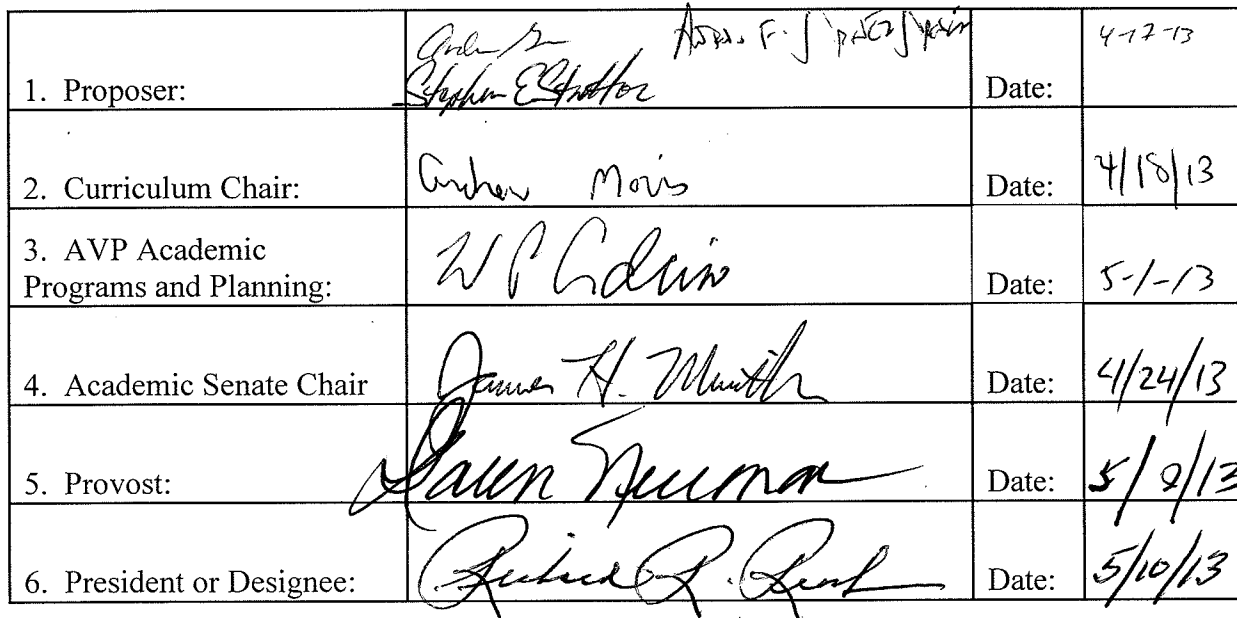 4-17-13
1. Proposer: Stephen E Stratton Date:
2. Curriculum Chair: Andrew Morris Date: 4/18/13
3. AVP Academic
Programs and Planning: Date: 5-1-13
4. Academic Senate Chair James H. Date: 4/24/13
5. Provost: Date: 5/9/13
6. President or Designee: Richard R. Rush Date: 5/10/13